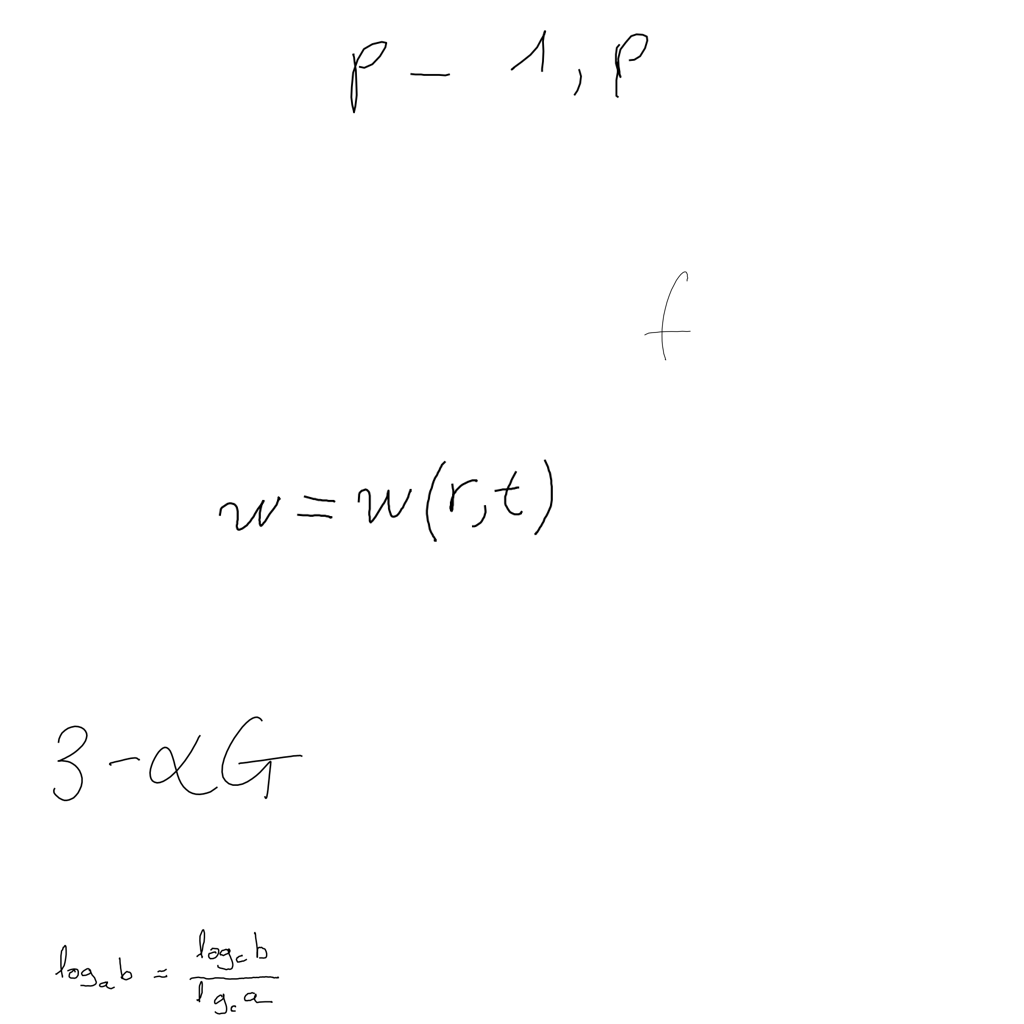 p - 1, p
f
w = w(r,t)
3 - αG
log_a b = \frac{log_c b}{lg_c a}